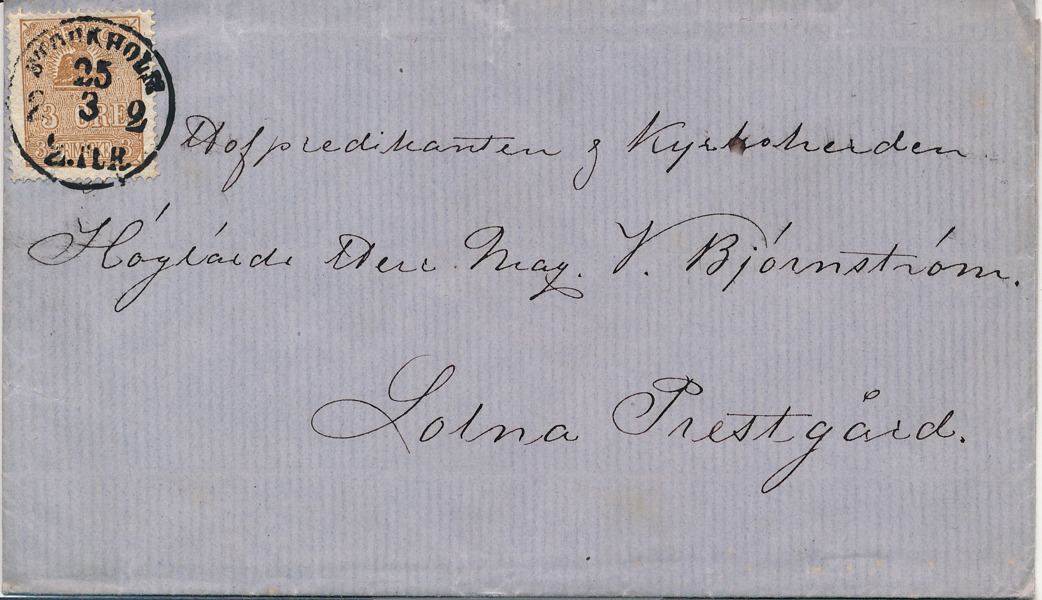 STOCKHOLM
25
3 2
2.TUR.
3 ÖRE
FRIMÄRKE
Hofpredikanten & Kyrkoherden
Höglärde Herr Mag. V. Björnström.
Solna Prestgård.